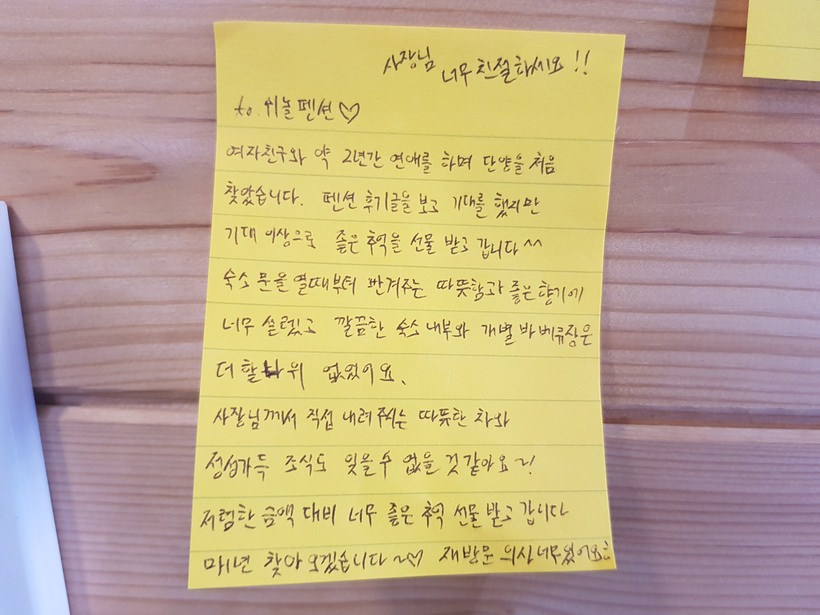 사장님 너무 친절하세요!!
to. 위놀펜션♡
여자친구와 약 2년간 연애를 하며 단양을 처음
찾았습니다. 펜션 후기글을 보고 기대를 했지만
기대 이상으로 좋은 추억을 선물 받고 갑니다^^
숙소 문을 열때부터 반겨주는 따뜻함과 좋은 향기에
너무 설렜고 깔끔한 숙소 내부와 개별 바베큐장은
더 할나위 없었어요.
사장님께서 직접 내려주시는 따뜻한 차와
정성가득 조식도 잊을 수 없을 것 같아요~!
저렴한 금액 대비 너무 좋은 추억 선물 받고 갑니다
매년 찾아 오겠습니다~♡ 재방문 의사 너무 있어요: